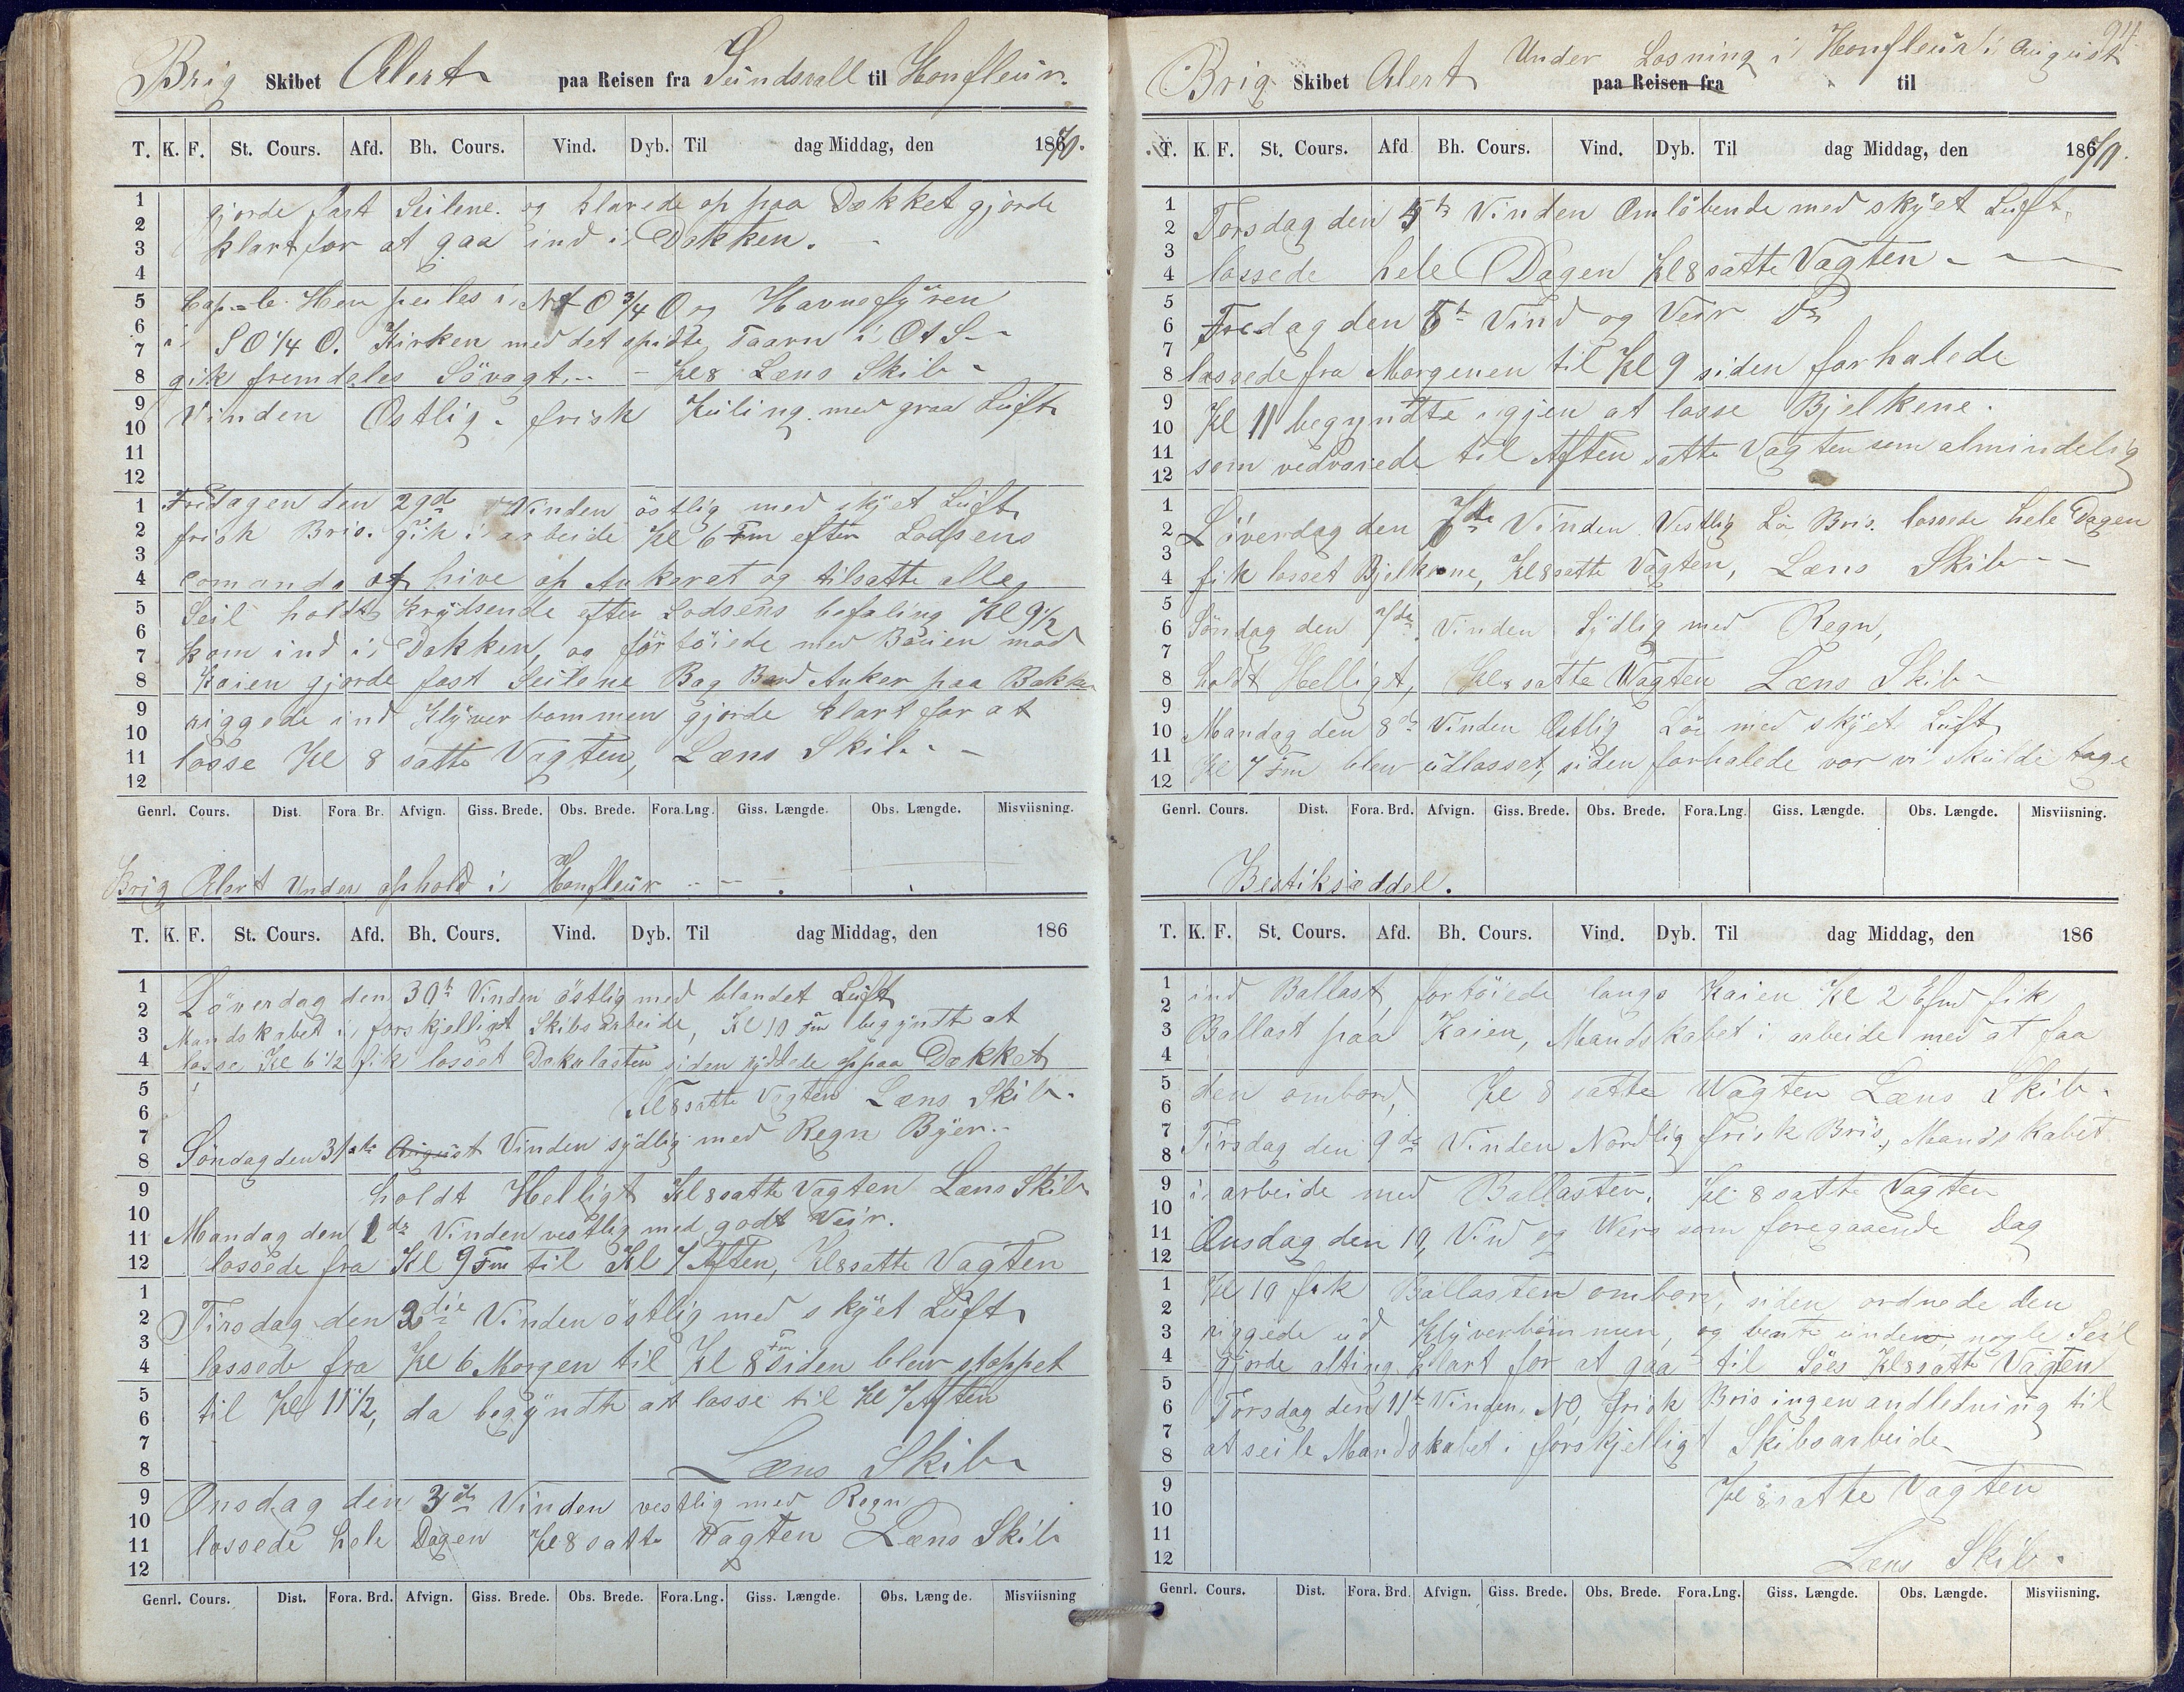 Brig Skibet Alert paa Reisen fra Sundsvall til Honfleur.
T. K. F. St. Cours. Afd. Bh. Cours. Vind. Dyb. Til dag Middag, den 1870.
gjorde fast Seilene. og klarede op paa Dækket gjorde
klart for at gaa ind i Dokken.
Cap de Hen peiles i N O 3/4 O og Havnefyren
i S O 1/4 O. Kirken med det spidse Taarn i O t S
gik fremdeles Søvagt. Kl 8 Læns Skib
Vinden Østlig. frisk Kuling. med graa Luft
Fridagen den 29de Vinden östlig med skyet Luft
frisk Bris. gik i arbeide Kl 6 Fm efter Lodsens
Comando at hive op Ankeret og tilsatte alle
Seil holdt krydsende efter Lodsens befaling Kl 9 1/2
kom ind i Dokken, og förtöiede med Bouen mod
Kaien gjorde fast Seilene Bag Bord Anker paa Bakken
riggede ind Klyverbommen gjorde klart for at
losse Kl 8 satte Vagten, Læns Skib.
Genrl. Cours. Dist. Fora. Br. Afvign. Giss. Brede. Obs. Brede. Fora. Lng. Giss. Længde. Obs. Længde. Misviisning.
Brig Alert Under ophold i Honfleur
T. K. F. St. Cours. Afd. Bh. Cours. Vind. Dyb. Til dag Middag, den 186
Löverdag den 30te Vinden östlig med blandet Luft
Mandskabet i forskjelligt Skibsarbeide, Kl 10 Fm begyndte at
losse Kl 6 1/2 fik losset Dækslasten siden ryddede op paa Dækket
Kl 8 satte Vagten Læns Skib.
Söndag den 31te August Vinden sydlig med Regn Byer.
holdt Helligt Kl 8 satte Vagten Læns Skib
Mandag den 1de Vinden vestlig med godt Veir.
lossede fra Kl 9 Fm til Kl 7 Aften, Kl 8 satte Vagten
Tirsdag den 2die Vinden östlig med skyet Luft
lossede fra Kl 6 Morgen til Kl 8 Fm siden blev stoppet
til Kl 11 1/2, da begyndte at losse til Kl 7 Aften
Læns Skib
Onsdag den 3de Vinden vestlig med Regn
lossede hele Dagen Kl 8 satte Vagten Læns Skib
Genrl. Cours. Dist. Fora. Brd. Afvign. Giss. Brede. Obs. Brede. Fora. Lng. Giss. Længde. Obs. Længde. Misviisning
94.
Brig Skibet Alert Under Losning i Honfleur i August
paa Reisen fra til
T. K. F. St. Cours. Afd Bh. Cours. Vind. Dyb. Til dag Middag, den 1870.
Torsdag den 4de Vinden Omlöbende med skyet Luft,
lossede hele Dagen Kl 8 satte Vagten
Fredag den 5te Vind og Veir Do
lossede fra Morgenen til Kl 9 siden forhalede
Kl 11 begyndte igjen at losse Bjelkene.
som vedvarede til Aften satte Vagten som almindelig
Löverdag den 6te Vinden Vestlig Lö Bris. lossede hele Dagen
fik losset Bjelkene, Kl 8 satte Vagten, Læns Skib
Söndag den 7de Vinden Sydlig med Regn,
holdt Helligt, Kl 8 satte Wagten Læns Skib
Mandag den 8de Vinden Østlig Lö med skyet Luft
Kl 7 Fm blev udlosset, siden forhalede vor vi skulde tage
Genrl. Cours. Dist. Fora. Brd. Afvign. Giss. Brede. Obs. Brede. Fora. Lng. Giss. Længde. Obs. Længde. Misviisning.
Bestiksæddel.
T. K. F. St. Cours. Afd. Bh. Cours. Vind. Dyb. Til dag Middag, den 186
ind Ballast, fortöiede langs Kaien Kl 2 Efmd fik
Ballast paa Kaien, Mandskabet i arbeide med at faa
den ombord, Kl 8 satte Wagten Læns Skib.
Tirsdag den 9de Vinden Nordlig frisk Bris, Mandskabet
i arbeide med Ballasten. Kl 8 satte Vagten
Onsdag den 10, Vind og Weir som foregaaende Dag
Kl 10 fik Ballasten ombord, siden ordnede den
riggede ud Klyverbommen, og bente under nogle Seil
gjorde alting klart for at gaa til Söes Kl 8 satte Vagten
Torsdag den 11te Vinden NO, frisk Bris ingen andledning til
at seile Mandskabet i forskjelligt Skibsarbeide
Kl 8 satte Vagten
Læns Skib.
Genrl. Cours. Dist. Fora. Brd. Afvign. Giss. Brede. Obs. Brede. Fora. Lng. Giss. Længde. Obs. Længde. Misviisning.